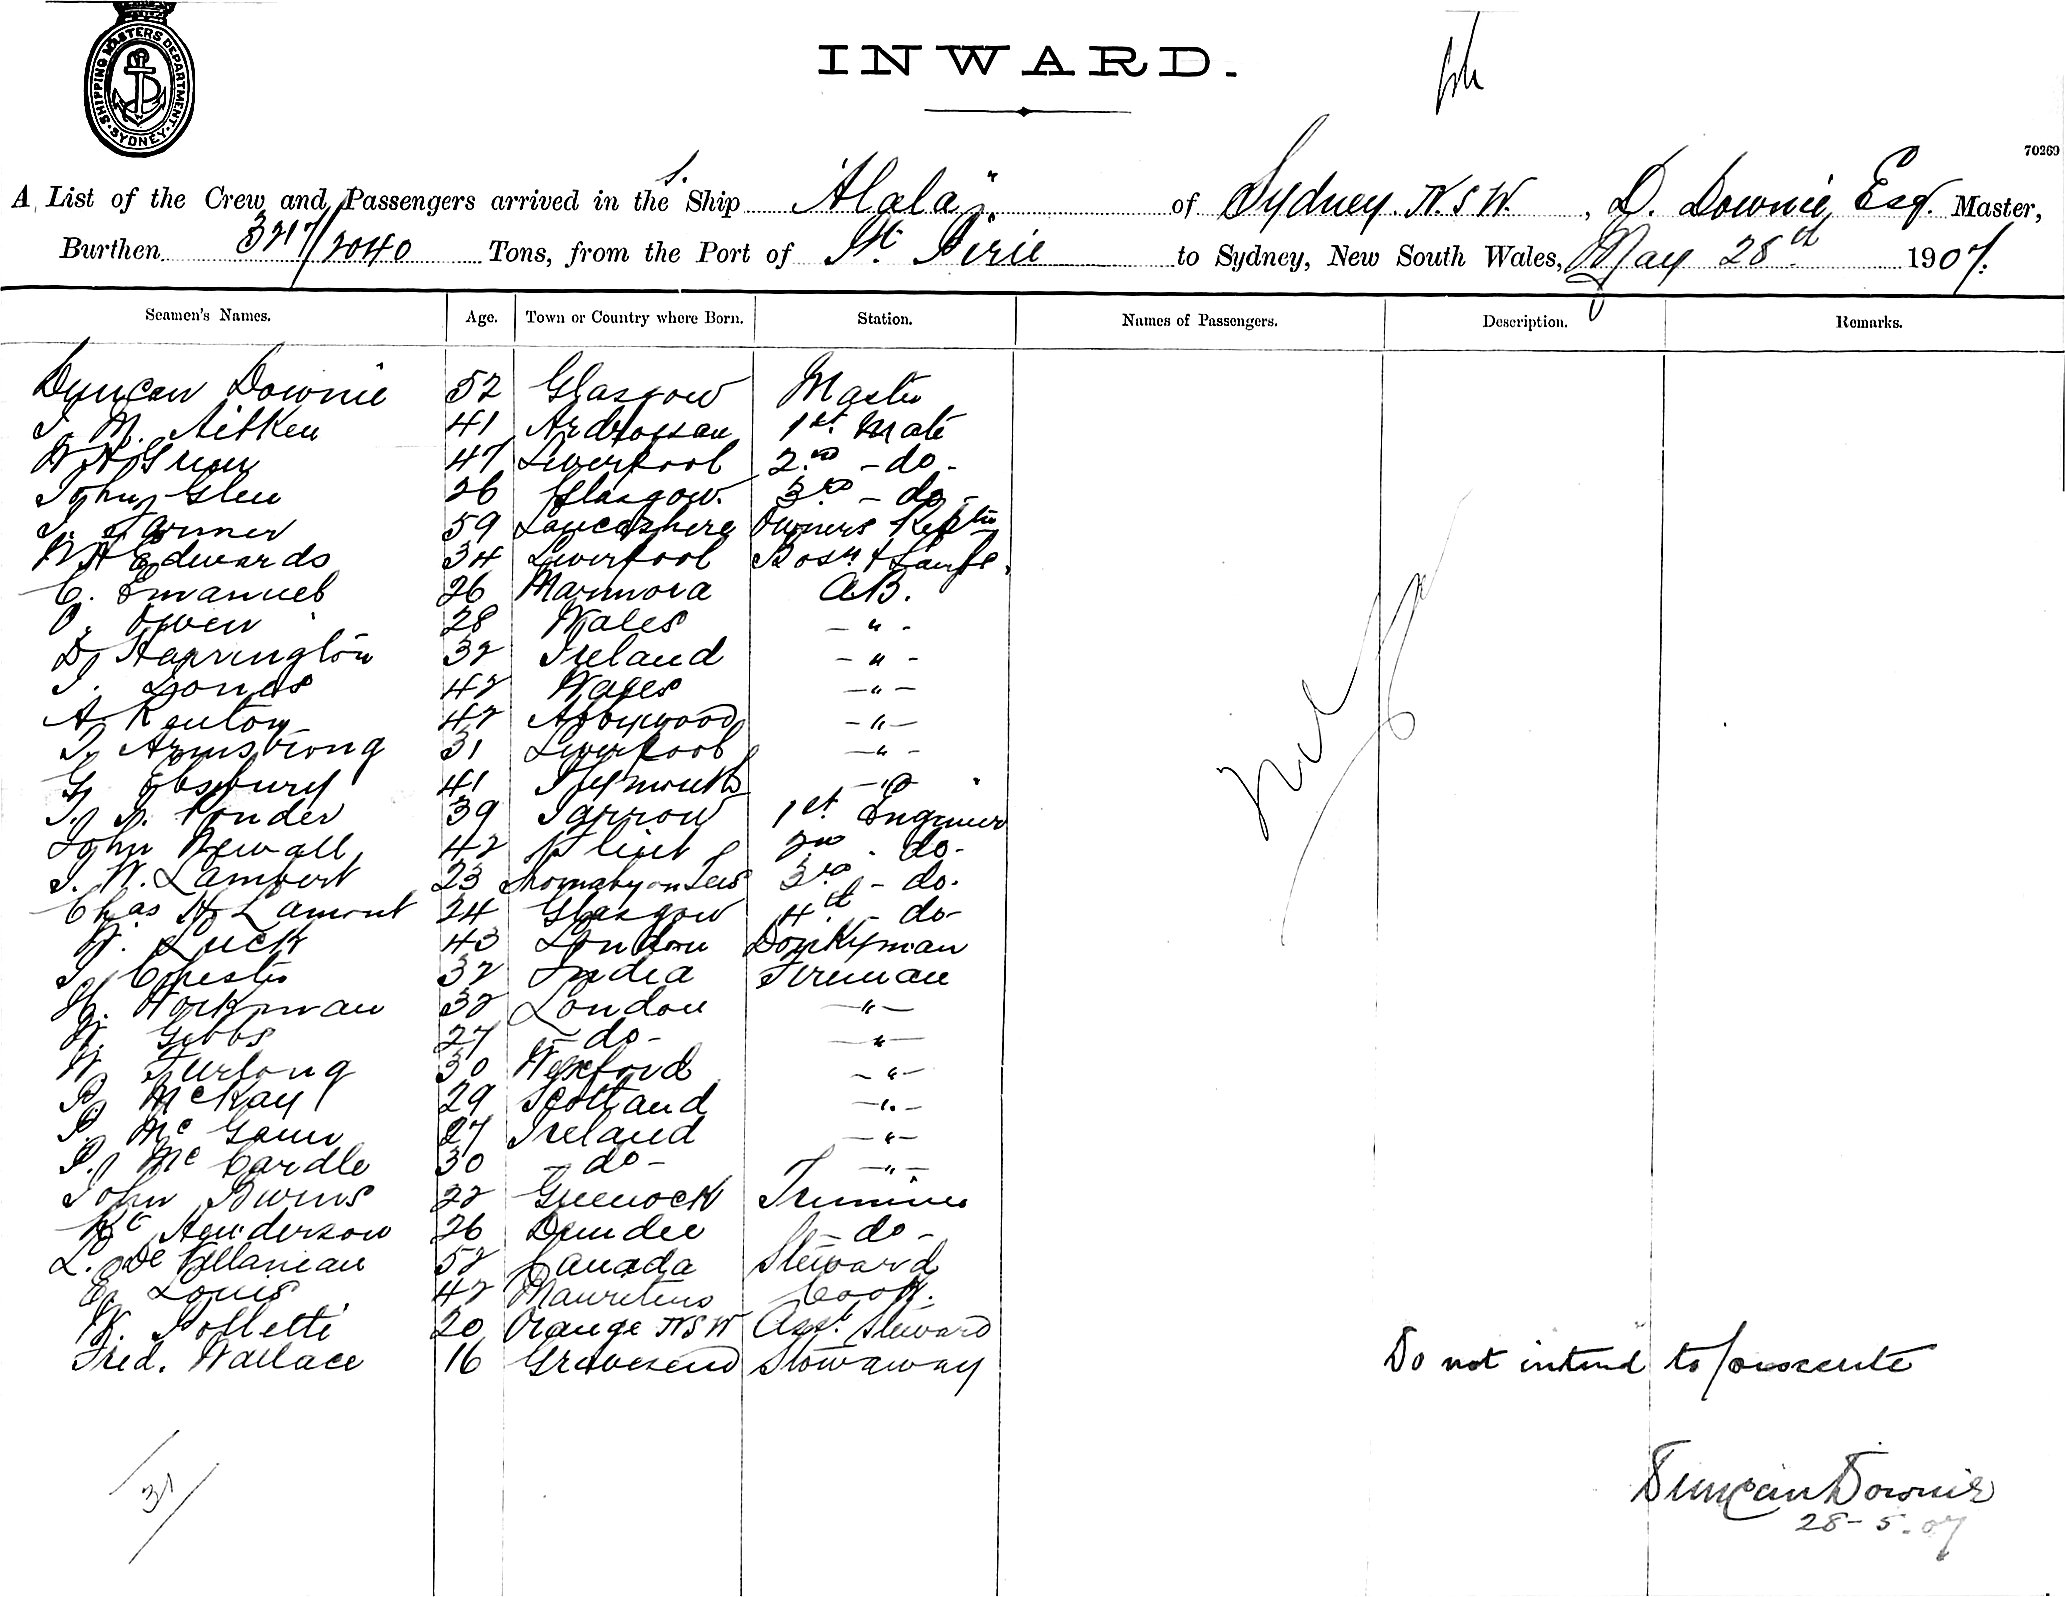 SHIPPING MASTERS DEPARTMENT. SYDNEY.
INWARD.
70269
A List of the Crew and Passengers arrived in the S. Ship "Alala" of Sydney. N.S.W., D. Downie Esq. Master,
Burthen 3217/2040 Tons, from the Port of Pt. Pirie to Sydney, New South Wales, May 28th 1907.
Seamen's Names. Age. Town or Country where Born. Station. Names of Passengers. Description. Remarks.
Duncan Downie 52 Glasgow Master
J. M. Aitken 41 Ardrossan 1st Mate
47 Liverpool 2nd - do -
John Glen 26 Glasgow. 3rd - do -
59 Lancashire Owners
W H Edwards 34 Liverpool Bosn & Lamps.
C. Emanuel 26 Marmora AB.
O. Owen 28 Wales - " -
D. Harrington 32 Ireland - " -
J. Jones 42 Wales - " -
A. Renton 42 Abbywood - " -
J. Armstrong 31 Liverpool - " -
G. Ebsbury 41 Plymouth - " -
Ponder 39 Jarrow 1st Engineer
John Newall 42 Flint 2nd - do -
J. W. Lambert 23 Thornaby on Tees 3rd - do.
Chas H. Lamont 24 Glasgow 4th - do -
W. Luck 43 London Donkyman
J. Chester 32 India Fireman
H. Workman 32 London - " -
W. Gibbs 27 - do - - " -
W. Furlong 30 Wexford - " -
P. McKay 29 Scotland - " -
P. Mc Gann 27 Ireland - " -
P. Mc Cardle 30 - do - - " -
John Burns 22 Greenock Trimmer
Henderson 26 Dundee - do -
L. De 52 Canada Steward
E. Louis 42 Mauritius Cook.
W. Polletti 20 Orange NSW Asst. Steward
Fred. Wallace 16 Gravesend Stowaway Do not intend to prosecute
Nil
31
Duncan Downie
28-5-07